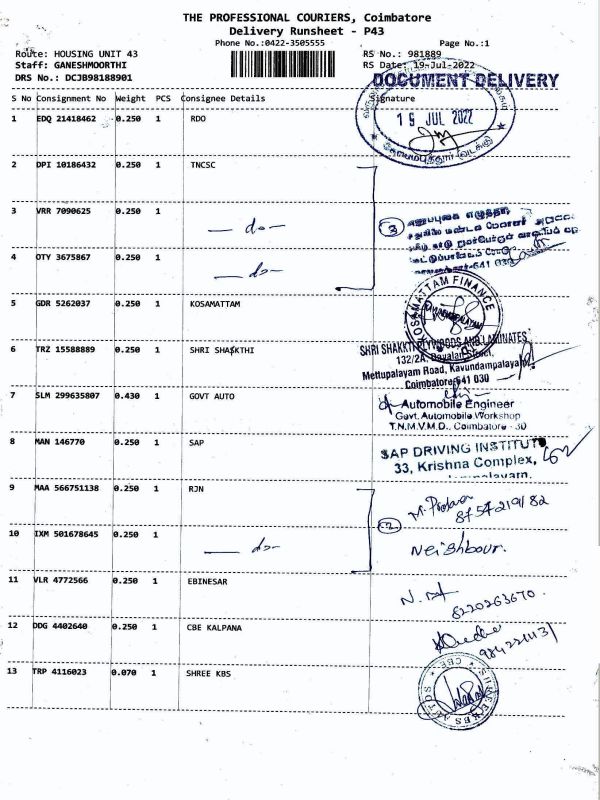 THE PROFESSIONAL COURIERS, Coimbatore
Delivery Runsheet - P43
Phone No.:0422-3505555
Page No.:1
Route: HOUSING UNIT 43
RS No.: 981889
Staff: GANESHMOORTHI
RS Date: 19-Jul-2022
DRS No.: DCJB98188901
DOCUMENT DELIVERY
S No Consignment No Weight PCS Consignee Details Signature
1 EDQ 21418462 0.250 1 RDO
19 JUL 2022
2 DPI 10186432 0.250 1 TNCSC
3 VRR 7090625 0.250 1 — do —
3
4 OTY 3675867 0.250 1 — do —
641 030
5 GDR 5262037 0.250 1 KOSAMATTAM
KOSAMATTAM FINANCE
KAVUNDAMPALAYAM
6 TRZ 15588889 0.250 1 SHRI SHAKTHI
SHRI SHAKKTI PLYWOODS AND LAMINATES
132/2A,
Mettupalayam Road, Kavundampalayam
Coimbatore-641 030
7 SLM 299635807 0.430 1 GOVT AUTO
Automobile Engineer
Govt. Automobile Workshop
T.N.M.V.M.D., Coimbatore - 30
8 MAN 146770 0.250 1 SAP
SAP DRIVING INSTITUTE
33, Krishna Complex,
9 MAA 566751138 0.250 1 RJN
8754219182
2
10 IXM 501678645 0.250 1 — do —
Neighbour.
11 VLR 4772566 0.250 1 EBINESAR
8220263670.
12 DDG 4402640 0.250 1 CBE KALPANA
13 TRP 4116023 0.070 1 SHREE KBS
SHREE KBS AUTOS
CBE